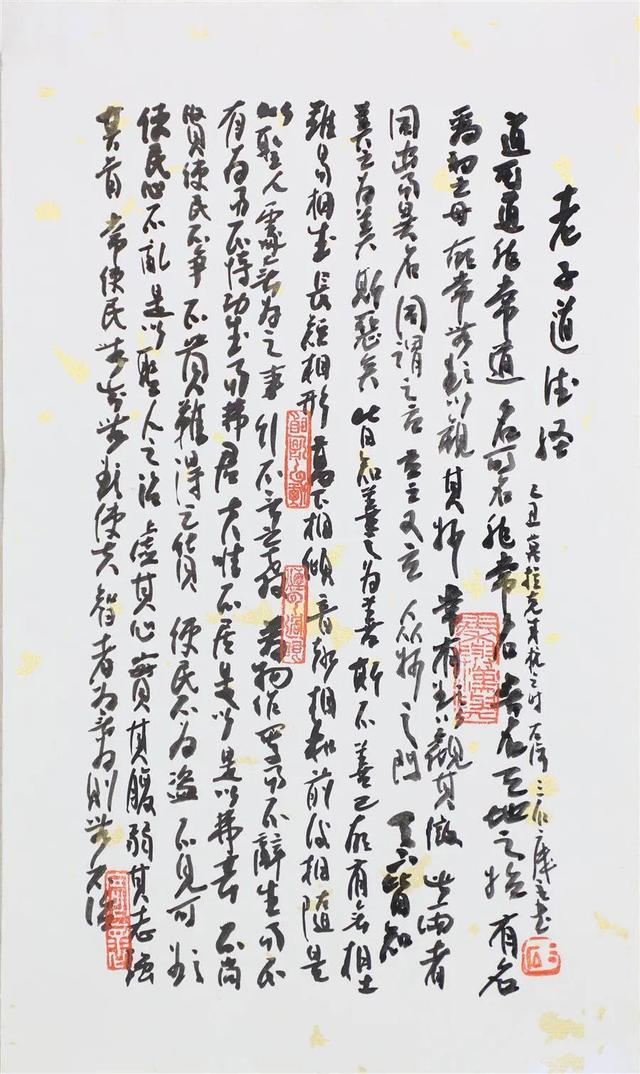 老子道德经
道可道非常道 名可名非常名 无名天地之始 有名
萬物之母 故常无欲以觀其妙 常有欲以觀其徼 此两者
同出而異名 同謂之玄 玄之又玄 众妙之門 天下皆知
美之为美 斯惡矣 皆知善之为善 斯不善已 故有无相生
難易相成 長短相形 高下相傾 音聲相和 前後相隨 是
以聖人處无为之事 行不言之教 萬物作焉而不辭 生而不
有 为而不恃 功成而弗居 夫惟不居 是以 是以弗去 不尚
賢 使民不争 不貴難得之貨 使民不为盗 不見可欲
使民心不亂 是以聖人之治 虚其心 實其腹 弱其志 強
其骨 常使民无知无欲 使夫智者 为 则无不治